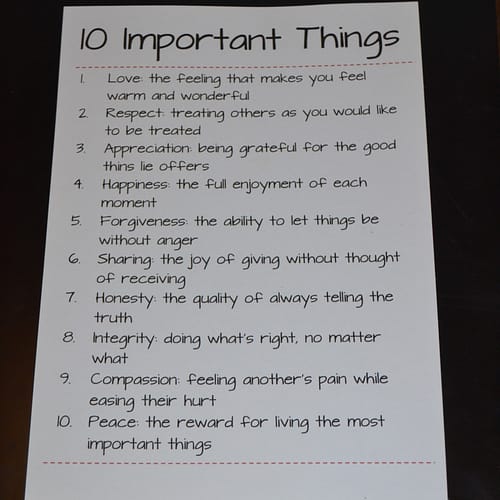 10 Important Things
1. Love: the feeling that makes you feel
warm and wonderful
2. Respect: treating others as you would like
to be treated
3. Appreciation: being grateful for the good
thins lie offers
4. Happiness: the full enjoyment of each
moment
5. Forgiveness: the ability to let things be
without anger
6. Sharing: the joy of giving without thought
of receiving
7. Honesty: the quality of always telling the
truth
8. Integrity: doing what's right, no matter
what
9. Compassion: feeling another's pain while
easing their hurt
10. Peace: the reward for living the most
important things